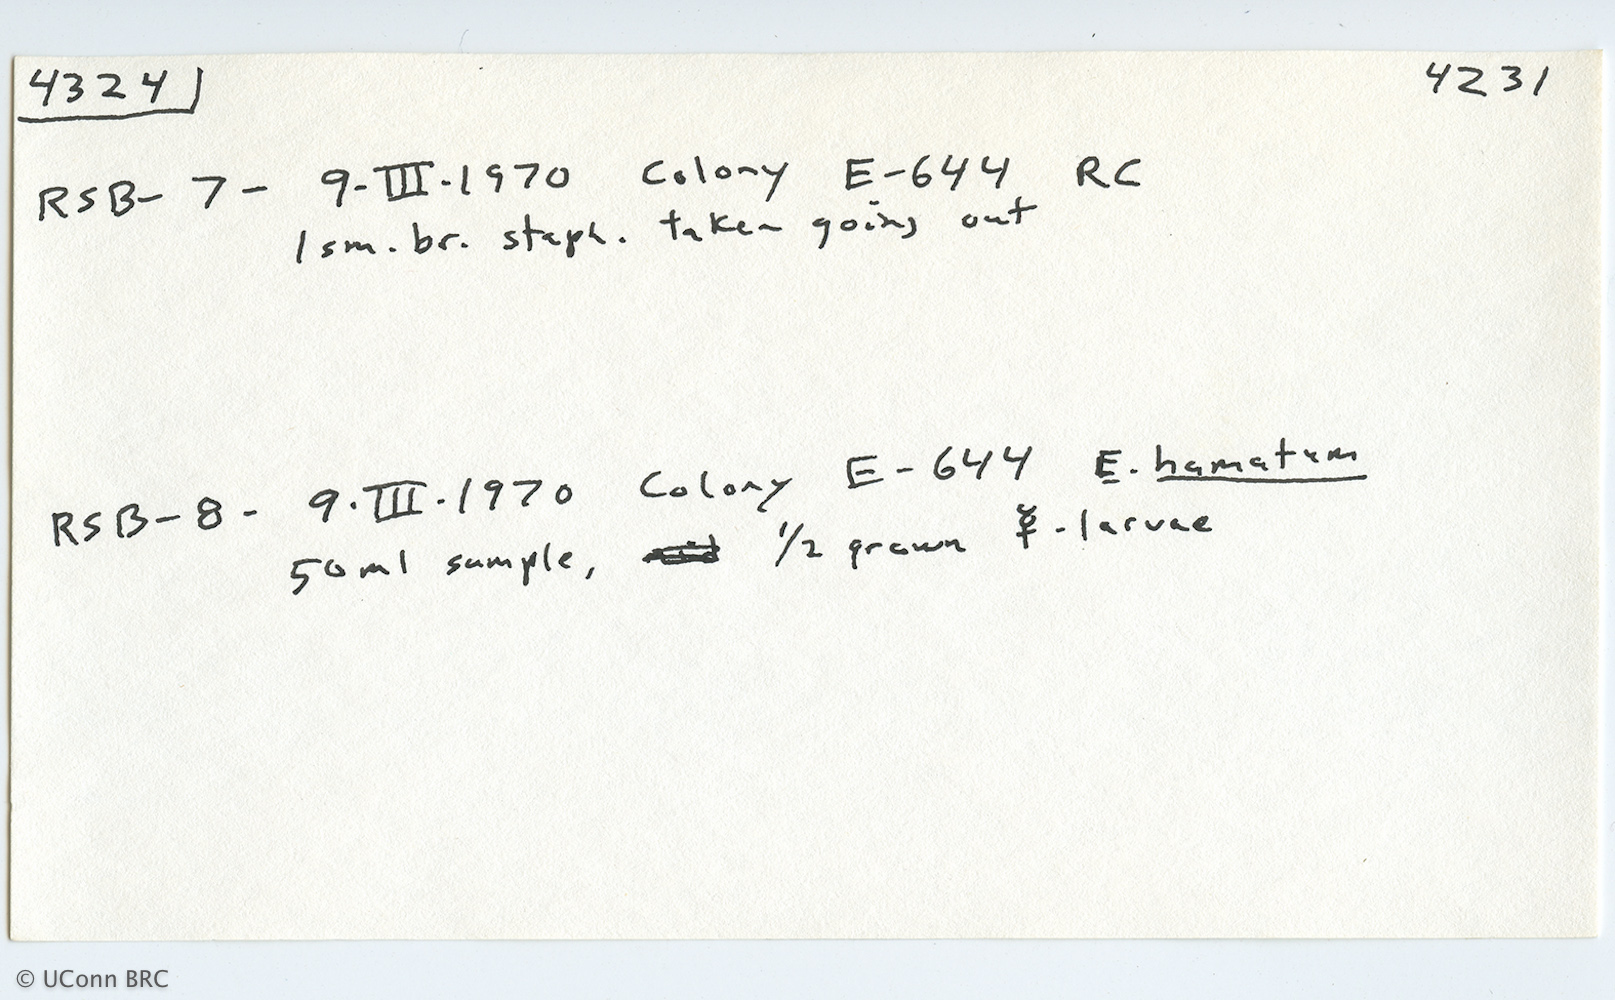 4324 4231
RSB-7- 9-III-1970 Colony E-644 RC
1 sm. br. staph. taken going out
RSB-8- 9.III.1970 Colony E-644 E. hamatum
50ml sample, 1/2 grown ☿-larvae
© UConn BRC